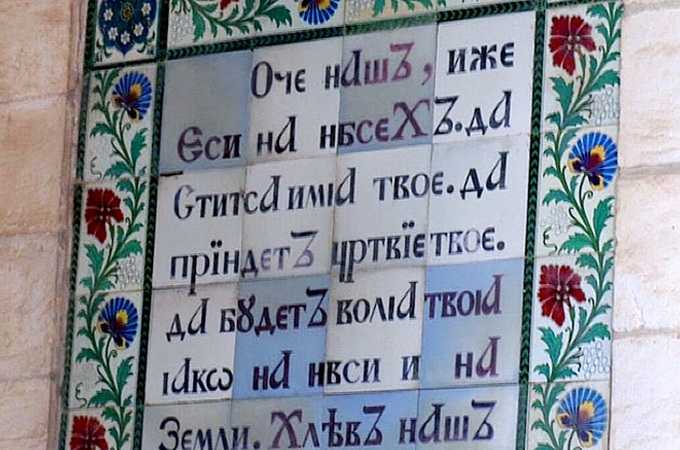 Оче нашЪ, иже
Єси на нбсехЪ. да
Стится имıа твоє. да
прїидетЪ црткїе твоє.
да бꙋдетЪ волıа твоıа
ıакѡ на нвси и на
Земли. ХлѣвЪ нашЪ